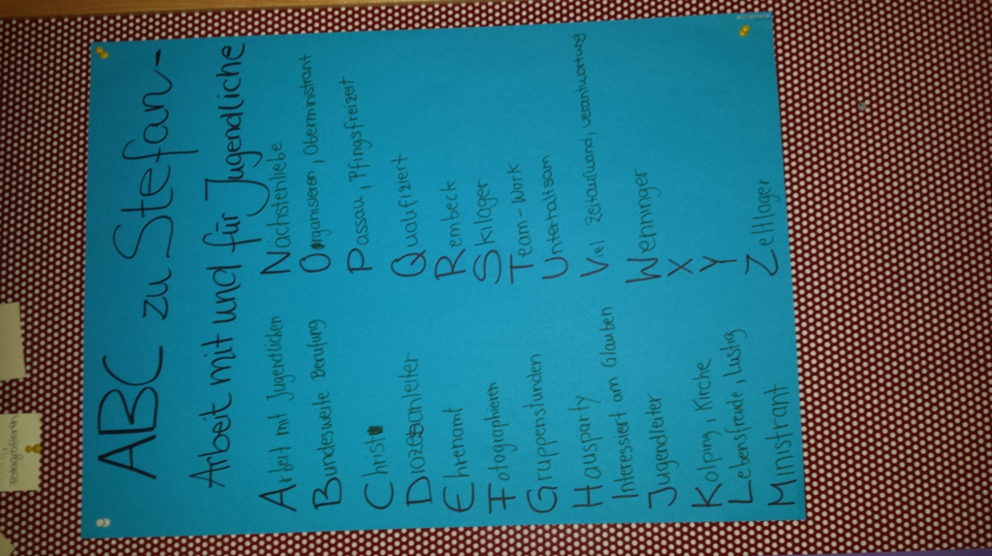 ABC zu Stefan -
Arbeit mit und für Jugendliche
Arbeit mit Jugendlichen
Bundesweite Berufung
Christ
Diözesanleiter
Ehrenamt
Fotographieren
Gruppenstunden
Hausparty
Interessiert am Glauben
Jugendleiter
Kolping, Kirche
Lebensfreude, lustig
Ministrant
Nächstenliebe
Organisieren, Oberministrant
Passau, Pfingsfreizeit
Qualifiziert
Rembeck
Skilager
Team-Work
Unterhaltsam
Viel Zeitaufwand, Verantwortung
Wenninger
X
Y
Zeltlager